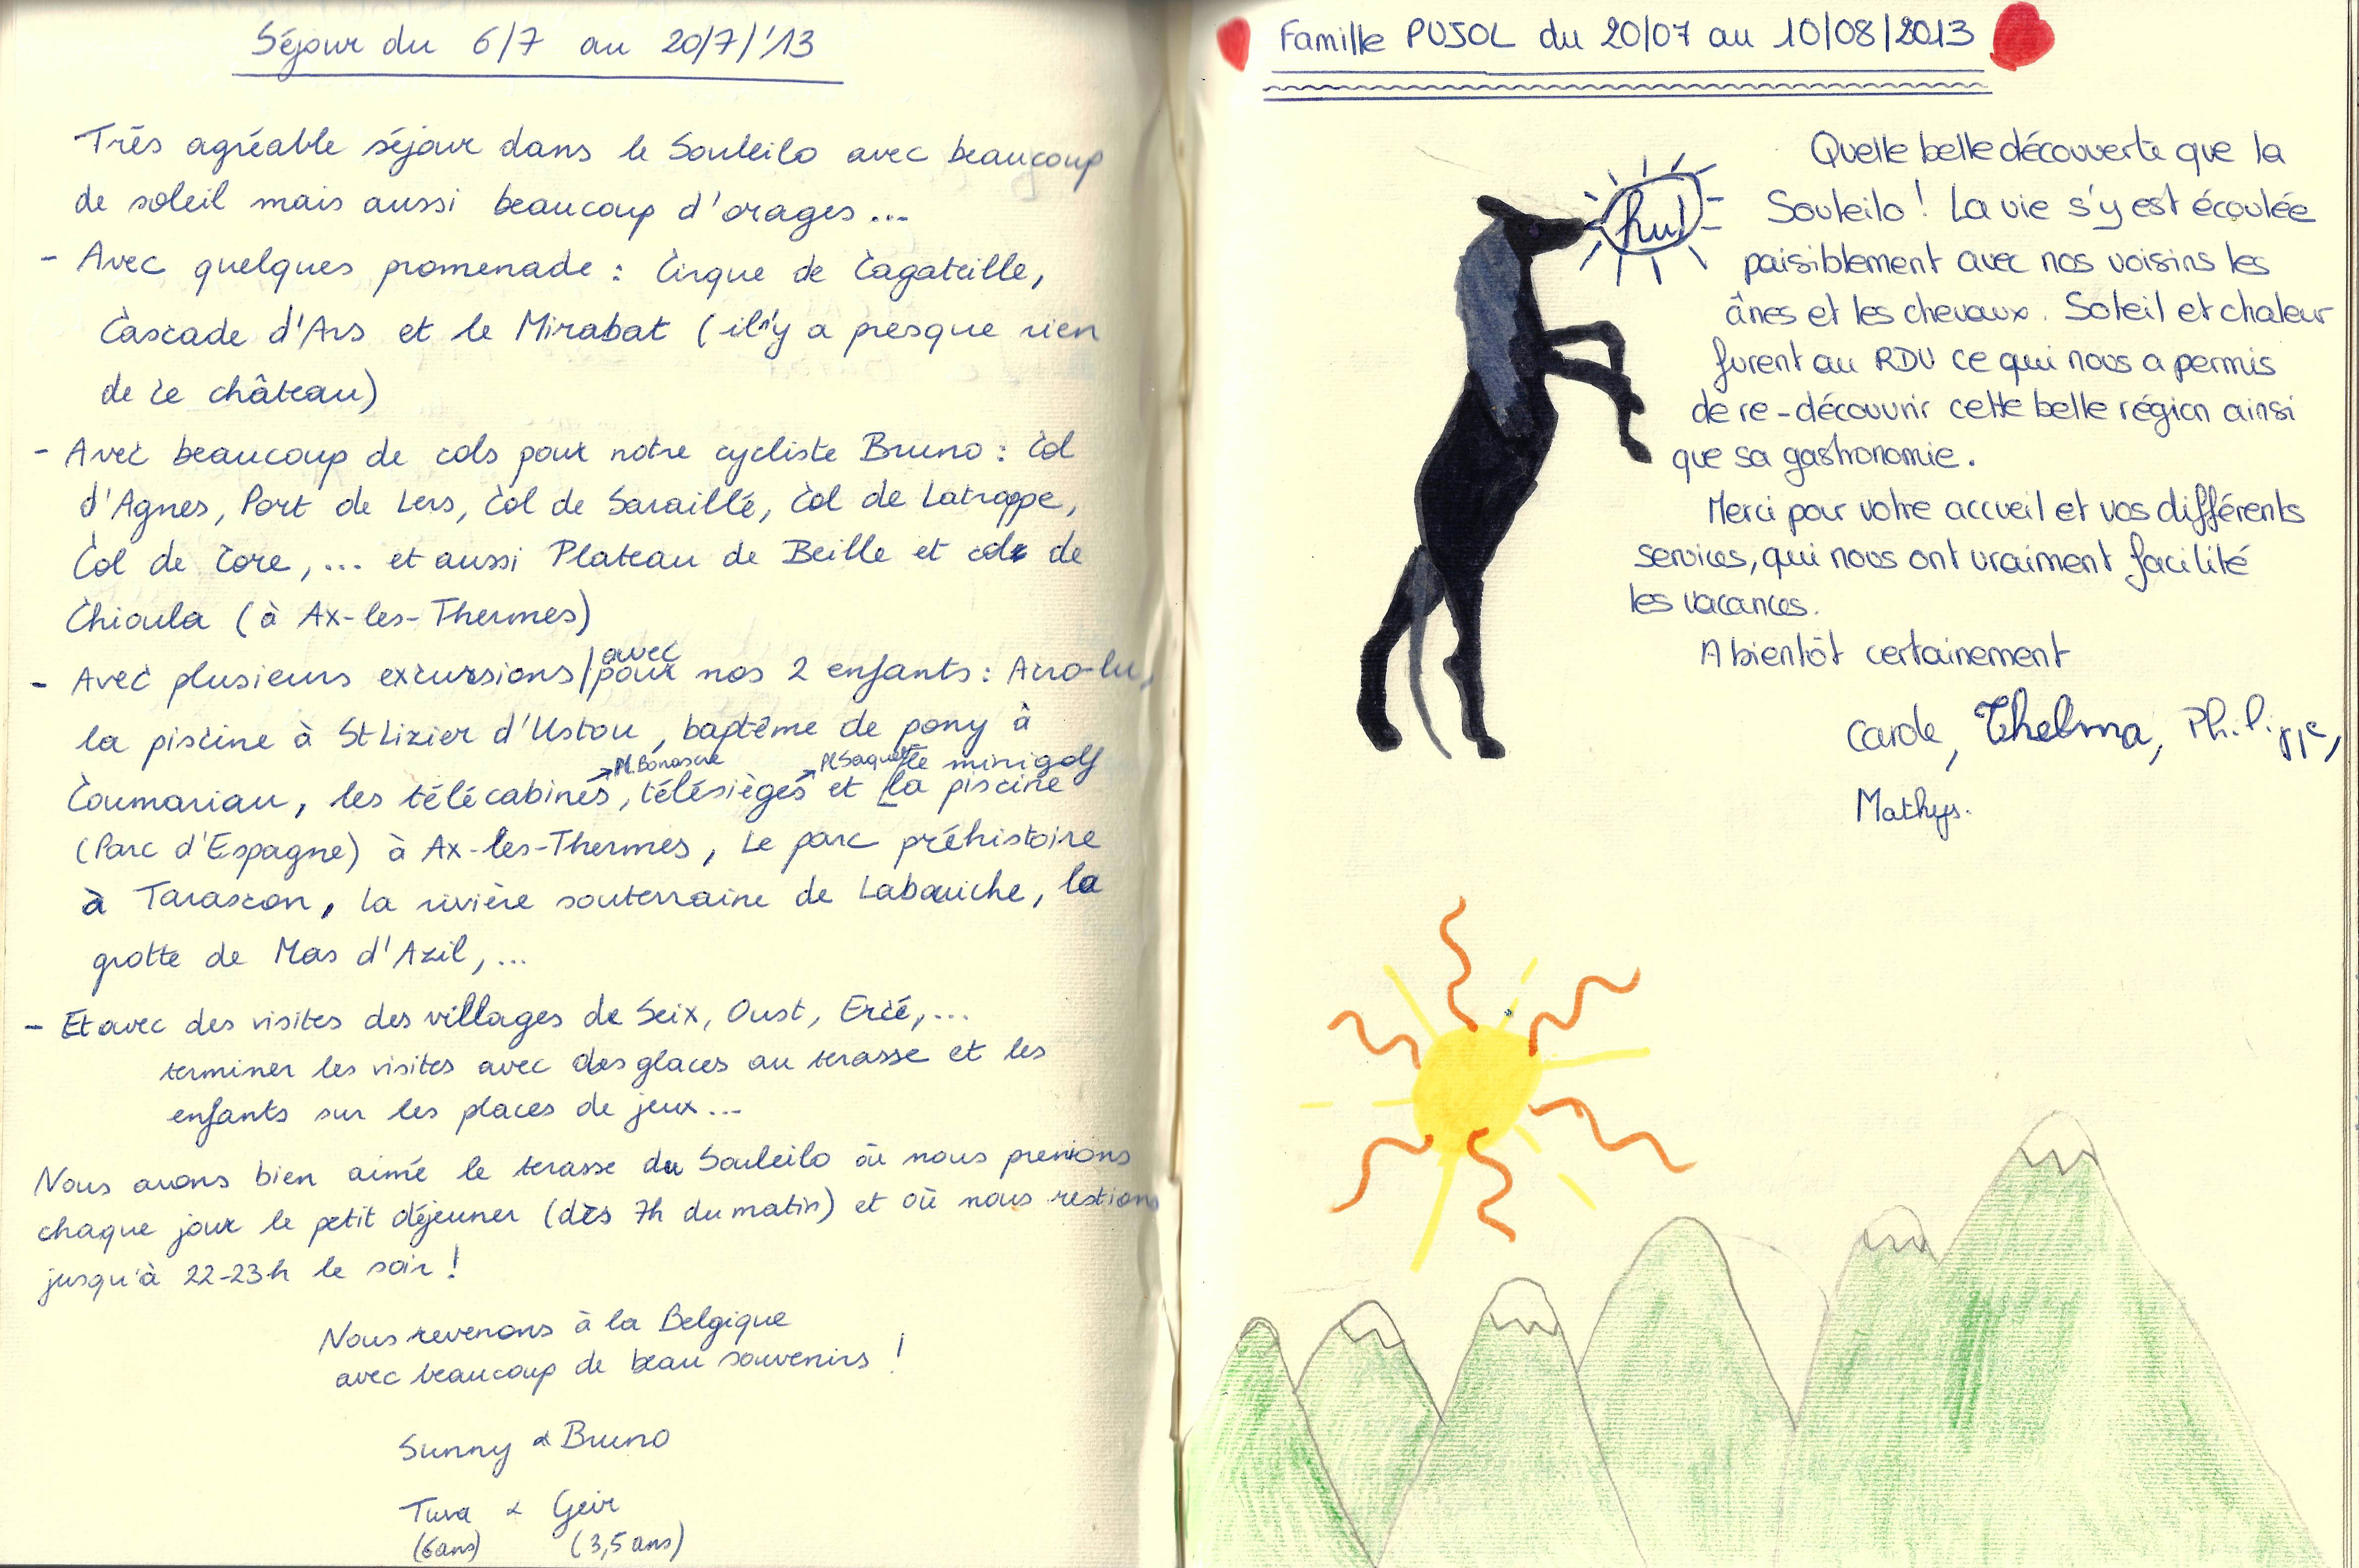 Séjour du 6/7 au 20/7/'13
Très agréable séjour dans le Souleilo avec beaucoup
de soleil mais aussi beaucoup d'orages...
- Avec quelques promenade : Cirque de Cagateille,
Cascade d'Ars et le Mirabat (il n'y a presque rien
de ce château)
- Avec beaucoup de cols pour notre cycliste Bruno : Col
d'Agnes, Port de Lers, Col de Saraillé, Col de Latrappe,
Col de Core, ... et aussi Plateau de Beille et col de
Chioula (à Ax-les-Thermes)
avec
- Avec plusieurs excursions/pour nos 2 enfants : Acro-lu,
la piscine à St Lizier d'Ustou, baptême de pony à
→ Pl. Bonascre → Pl. Saquet le minigolf
Coumariau, les télécabines, télésièges et la piscine
(Parc d'Espagne) à Ax-les-Thermes, Le parc préhistoire
à Tarascon, la rivière souterraine de Labouiche, la
grotte de Mas d'Azil, ...
- Et avec des visites des villages de Seix, Oust, Ercé, ...
terminer les visites avec des glaces au terasse et les
enfants sur les places de jeux...
Nous avons bien aimé le terasse du Souleilo où nous prenions
chaque jour le petit déjeuner (dès 7h du matin) et où nous restions
jusqu'à 22-23h le soir !
Nous revenons à la Belgique
avec beaucoup de beau souvenirs !
Sunny & Bruno
Tuva & Geir
(6ans) (3,5 ans)
Famille PUJOL du 20/07 au 10/08/2013
Quelle belle découverte que la
Souleilo ! La vie s'y est écoulée
paisiblement avec nos voisins les
ânes et les chevaux. Soleil et chaleur
furent au RDV ce qui nous a permis
de re-découvrir cette belle région ainsi
que sa gastronomie.
Merci pour votre accueil et vos différents
services, qui nous ont vraiment facilité
les vacances.
A bientôt certainement
Carole, Thelma, Philippe,
Mathys.
hu!